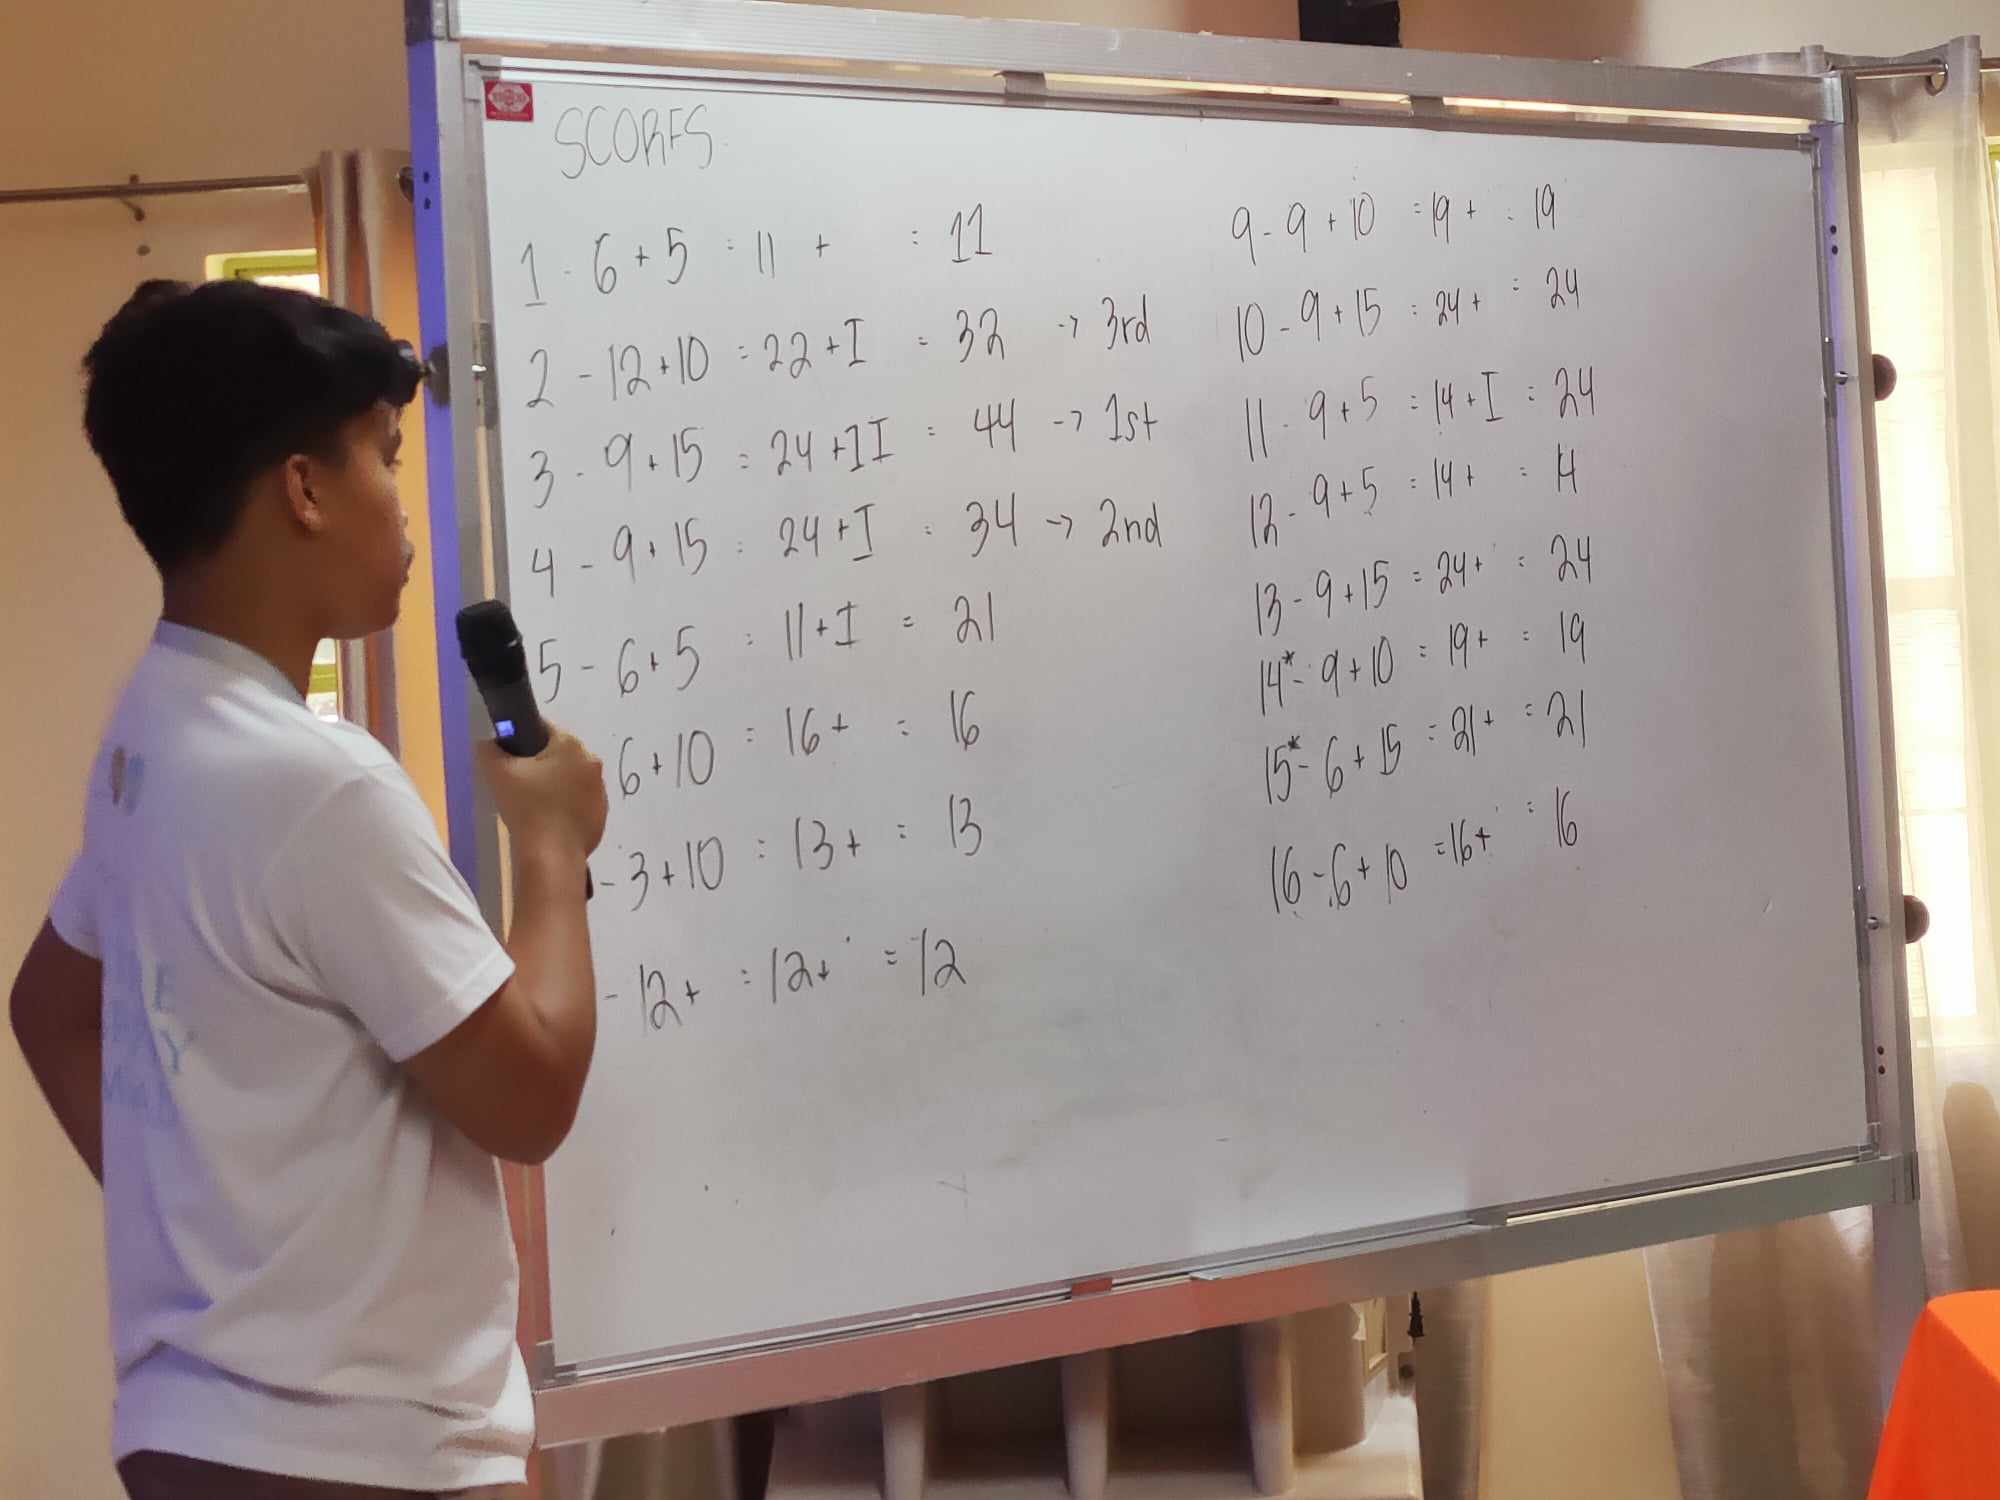 SCORES
1 - 6 + 5 = 11 + = 11
2 - 12 + 10 = 22 + I = 32 → 3rd
3 - 9 + 15 = 24 + II = 44 → 1st
4 - 9 + 15 = 24 + I = 34 → 2nd
5 - 6 + 5 = 11 + I = 21
6 + 10 = 16 + = 16
- 3 + 10 = 13 + = 13
- 12 + = 12 + = 12
9 - 9 + 10 = 19 + = 19
10 - 9 + 15 = 24 + = 24
11 - 9 + 5 = 14 + I = 24
12 - 9 + 5 = 14 + = 14
13 - 9 + 15 = 24 + = 24
14* - 9 + 10 = 19 + = 19
15* - 6 + 15 = 21 + = 21
16 - 6 + 10 = 16 + = 16